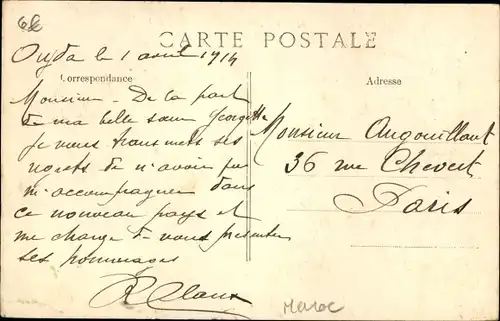 CARTE POSTALE
Oujda le 1 avril 1914
Correspondance
Adresse
Monsieur - De la part
de ma belle sœur Georgette
je vous transmets ses
regrets de n'avoir pu
m'accompagner dans
ce nouveau pays et
me charge de vous présenter
ses hommages
Monsieur Angouillant
36 rue Chevert
Paris
Maroc